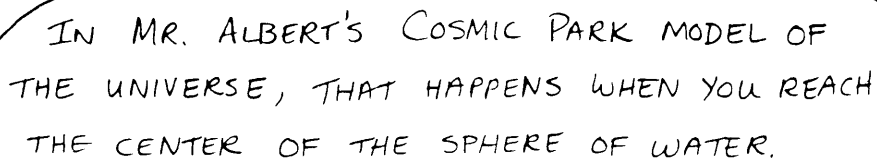 IN MR. ALBERT'S COSMIC PARK MODEL OF
THE UNIVERSE, THAT HAPPENS WHEN YOU REACH
THE CENTER OF THE SPHERE OF WATER.